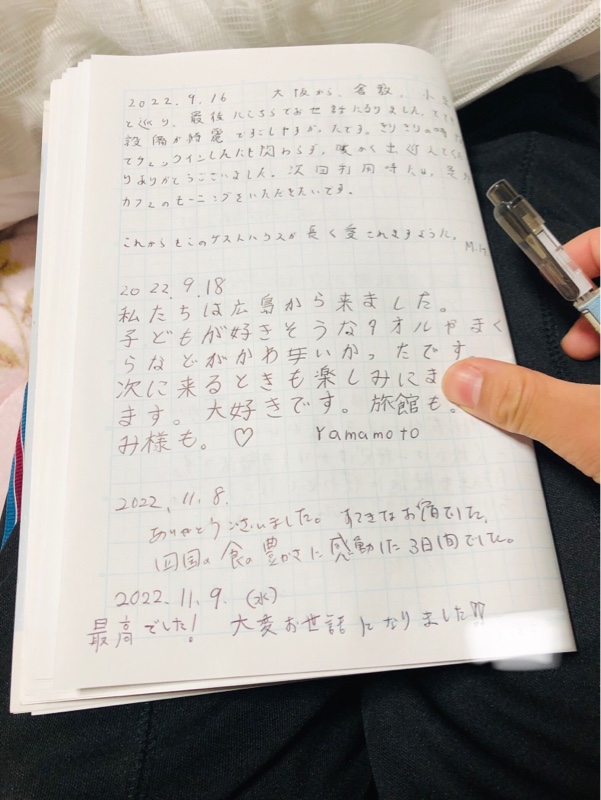 2022.9.16 大阪から、倉敷、
と巡り、最後にこちらでお世話になりました。とても
設備が綺麗ですごしやすかったです。ぎりぎりの時
でチェックインしたにも関わらず、暖かく出迎えてくだ
りありがとうございました。次回利用時には、是非
カフェのモーニングをいただきたいです。
これからもこのゲストハウスが長く愛されますように。 M.H
2022.9.18
私たちは広島から来ました。
子どもが好きそうなタオルやまく
らなどがかわ辛いかったです
次に来るときも楽しみにま
ます。大好きです。旅館も。
み様も。♡ Yamamoto
2022.11.8.
ありがとうございました。すてきなお宿でした。
四国の食の豊かさに感動した3日間でした。
2022.11.9.(水)
最高でした! 大変お世話になりました!!